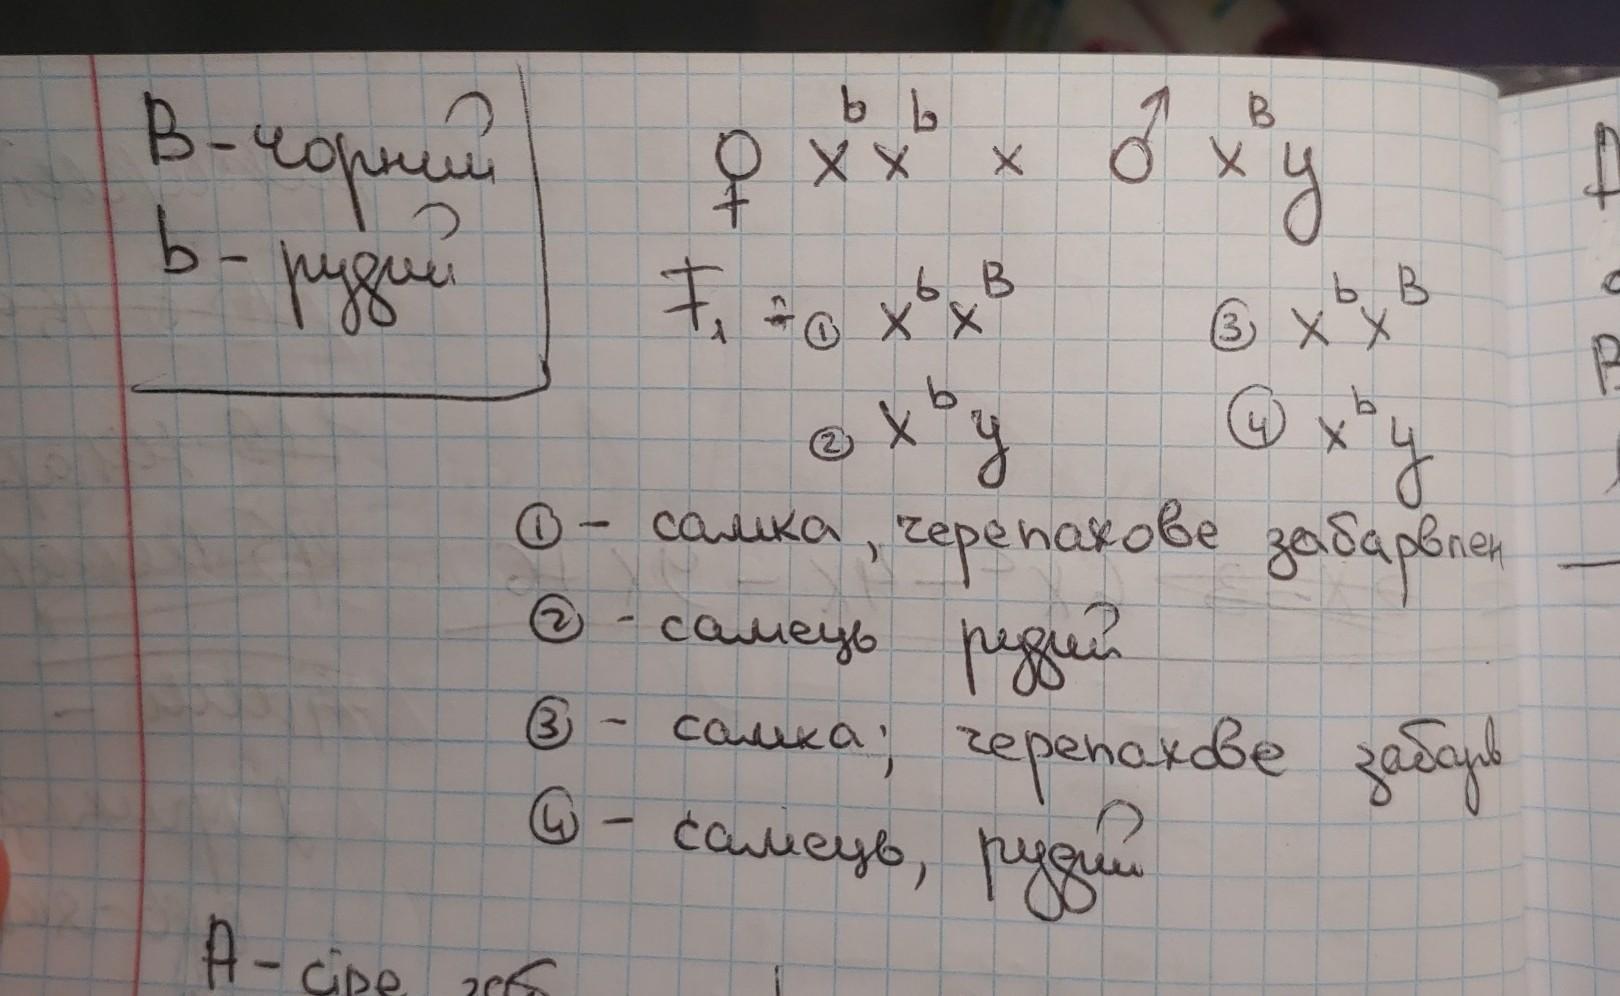 B - чорний
b - рудий
♀ x^b x^b x ♂ x^B y
F₁ ÷ ① x^b x^B ③ x^b x^B
② x^b y ④ x^b y
① - самка, черепахове забарвлен
② - самець рудий
③ - самка; черепахове забарв
④ - самець, рудий
A - сіре заб